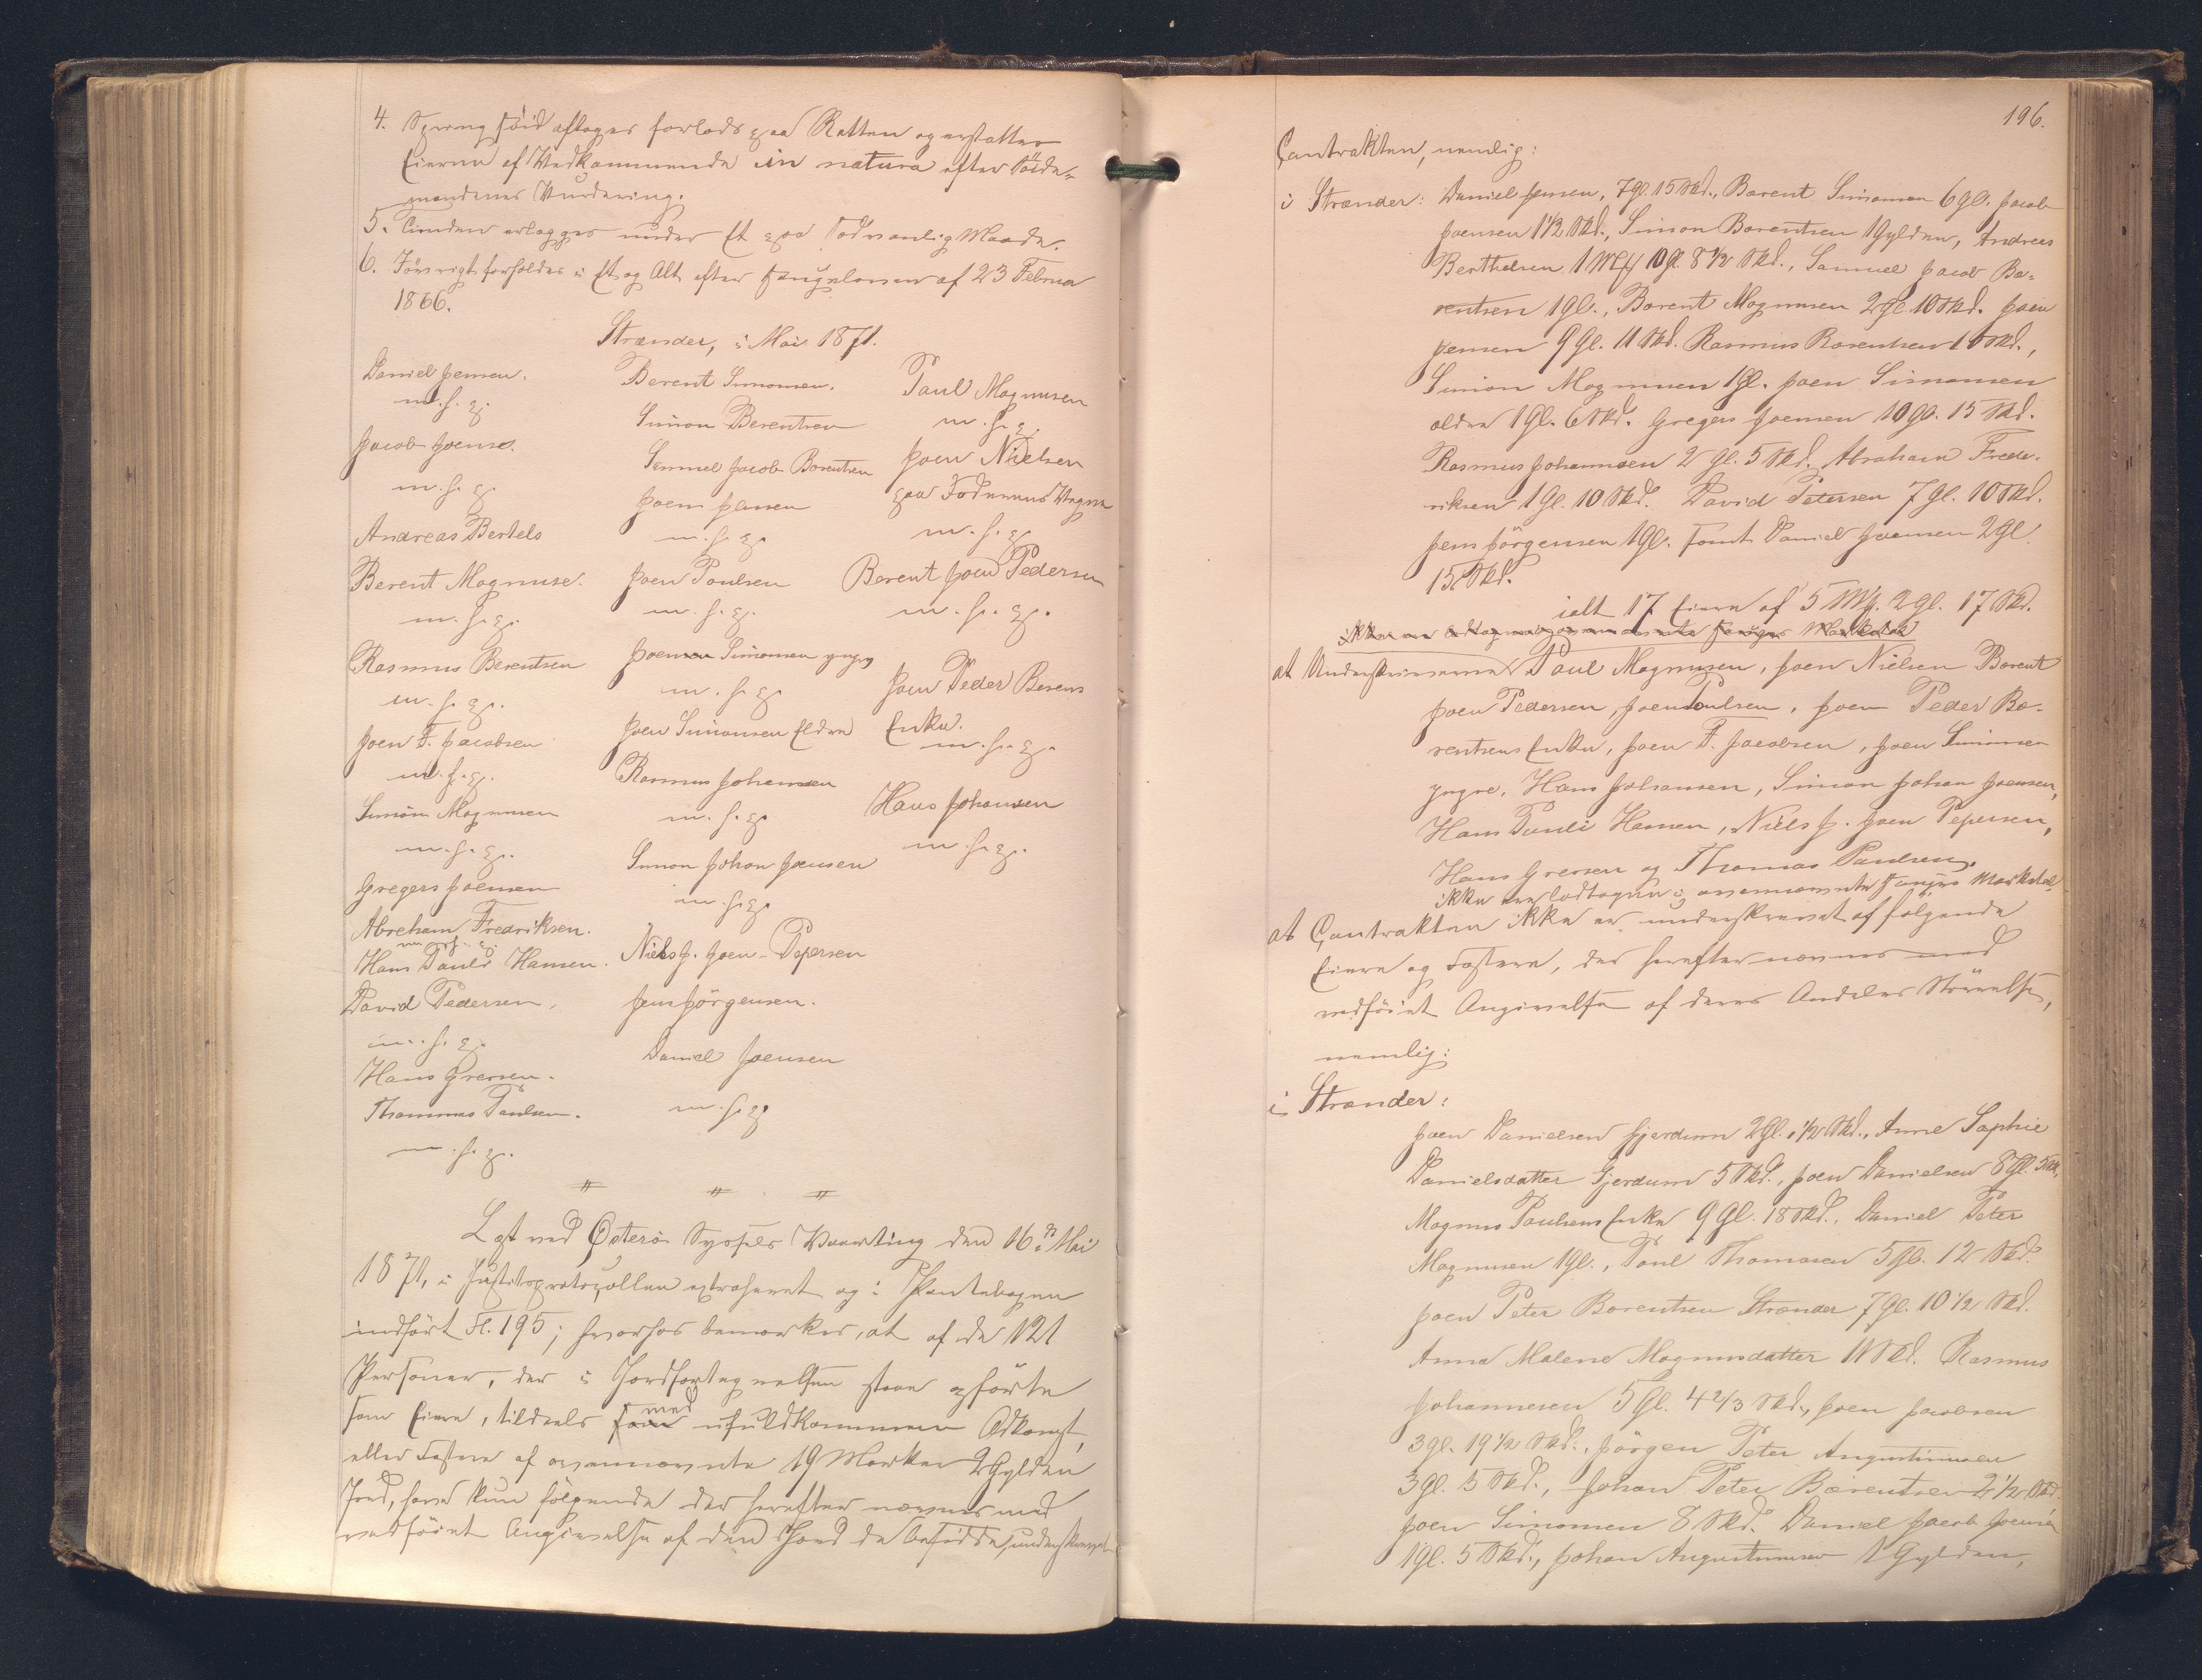 4. Spring föid aftages forlods paa Retten og erstattes
Eierne af Vedkommende in natura efter Vurde-
mændenes Vurdering.
5. Tienden erlægges under Et paa sædvanlig Maade.
6. Iövrigt forholdes i Et og Alt efter Haugeloven af 23 Februar
1866.
Strænder, i Mai 1871.
Daniel Joensen.
m. f. P.
Jacob Joense.
m. f. P.
Andreas Bertels
Berent Magnuse.
m. f. P.
Rasmus Berentsen
m. f. P.
Joen F. Jacobsen
m. f. P.
Simon Magnusen
m. f. P.
Gregers Joensen
Abreham Fredriksen.
m. f. P.
Hans Pauli Hansen.
David Pedersen,
m. f. P.
Hans Gresen.
Thommas Paulsen.
m. f. P.
Berent Simonsen.
Simon Berentsen
Samuel Jacob Berentsen
Joen Jansen
m. f. P.
Joen Poulsen
m. f. P.
Joensen Simonsen yngre
m. f. P.
Joen Simonsen Eldre
Rasmus Johansen
m. f. P.
Simon Johan Joensen
m. f. P.
Niels J. Joen-Pepersen
Jens Jörgensen.
Daniel Joensen
m. f. P.
Paul Magnusen
m. f. P.
Joen Nielsen
paa Vegne
m. f. P.
Berent Joen Pedersen
m. f. P.
Joen Peder Berens
Enke.
m. f. P.
Hans Johansen
m. f. P.
Læst ved Österö Syssels Vaarting den 16de Mai
1871, i Justitsprotocollen extraheret og i Pantebogen
indfört Fl. 195; hvorhos bemærkes, at af de 121
Personer, der i Jordfortegnelsen staae opförte
som Eiere, tildeels som med ufuldkommen Adkomst,
eller Fæstere af ovennævnte 19 Marker 2 Gylden
Jord, have kun fölgende der herefter nævnes med
vedföiet Angivelse af den Jord de besidde, underskrevet
196.
Contrakten, nemlig:
i Strænder: Daniel Joensen, 7 Gl. 15 Skd., Barent Simonsen 6 Gl. Jacob
Joensen 1 1/2 Skd., Simon Barentsen 1 Gylden, Andreas
Berthelsen 1 Mk 10 Gl. 8 1/2 Skd., Samuel Jacob Ba-
rentsen 1 Gl., Barent Magnusen 2 Gl. 10 Skd. Joen
Jensen 9 Gl. 11 Skd. Rasmus Barentsen 10 Skd.,
Simon Magnusen 1 Gl. Joen Simonsen
ældre 1 Gl. 6 Skd. Gregers Joensen 10 Gl. 15 Skd.
Rasmus Johannesen 2 Gl. 5 Skd. Abraham Frede-
riksen 1 Gl. 10 Skd. David Petersen 7 Gl. 10 Skd.
Jens Jörgensen 1 Gl. samt Daniel Joensen 2 Gl.
15 Skd.
ialt 17 Eiere af 5 Mk. 2 Gl. 17 Skd.
ikke er lodtagne i ovennævnte Hauges Marketal
at Underskriverne Paul Magnusen, Joen Nielsen Barent
Joen Pedersen, Joen Poulsen, Joen Peder Ba-
rentsens Enke, Joen F. Jacobsen, Joen Simonsen
yngre, Hans Johansen, Simon Johan Joensen,
Hans Pauli Hansen, Niels J. Joen Pepersen,
Hans Gresen og Thomas Paulsen,
ikke ere lodtagne i ovennævnte Hauges Marketal,
at Contrakten ikke er underskrevet af følgende
Eiere og Fæstere, der herefter nævnes med
vedföiet Angivelse af deres Andeles Störrelse,
nemlig:
i Strænder:
Joen Danielsen Gjerdum 2 Gl. 1 1/2 Skd., Anne Sophie
Danielsdatter Gjerdum 5 Skd., Joen Danielsen 8 Gl. 5 Skd.
Magnus Paulsens Enke 9 Gl. 18 Skd., Daniel Peter
Magnusen 1 Gl., Paul Thomasen 5 Gl. 12 Skd.
Joen Peter Barentsen Strænder 7 Gl. 10 1/2 Skd.
Anna Malene Magnusdatter 11 Skd. Rasmus
Johannesen 5 Gl. 4 2/3 Skd., Joen Jacobsen
3 Gl. 19 1/2 Skd., Jörgen Peter Augustinusen
3 Gl. 5 Skd., Johan Peter Barentsen 2 1/2 Skd
Joen Simonsen 8 Skd. Daniel Jacob Joensen
1 Gl. 5 Skd., Johan Augustinusen 1 Gylden,